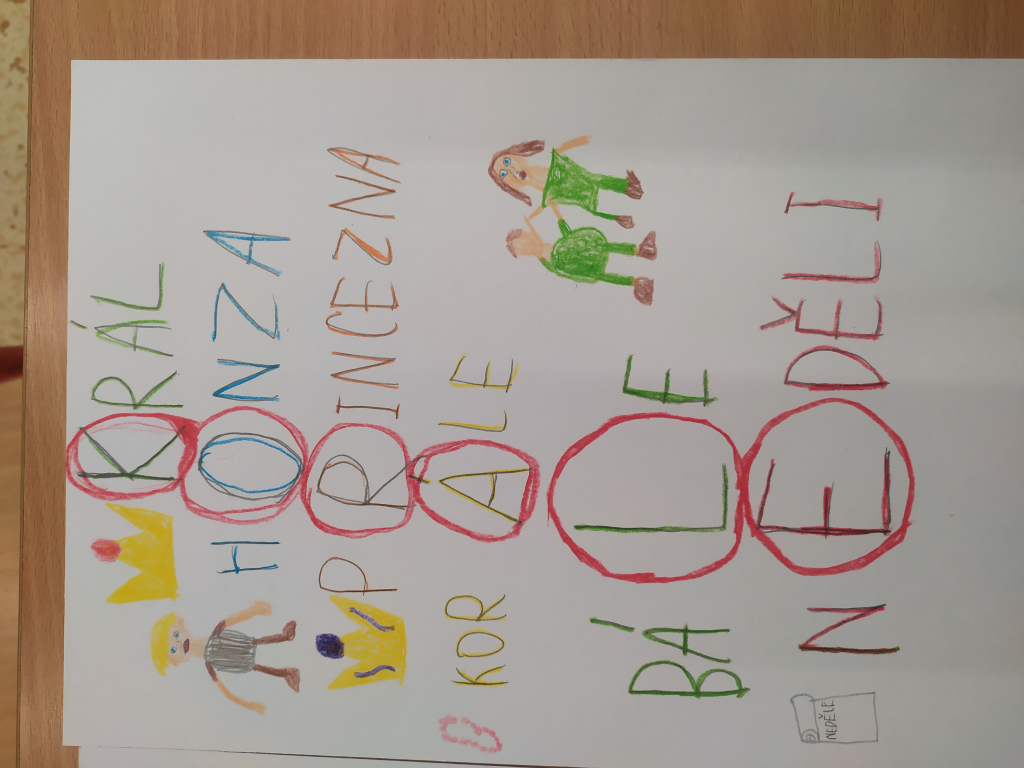 KRÁL
HONZA
PRINCEZNA
KORÁLE
BÁLE
NEDĚLI
NEDĚLE